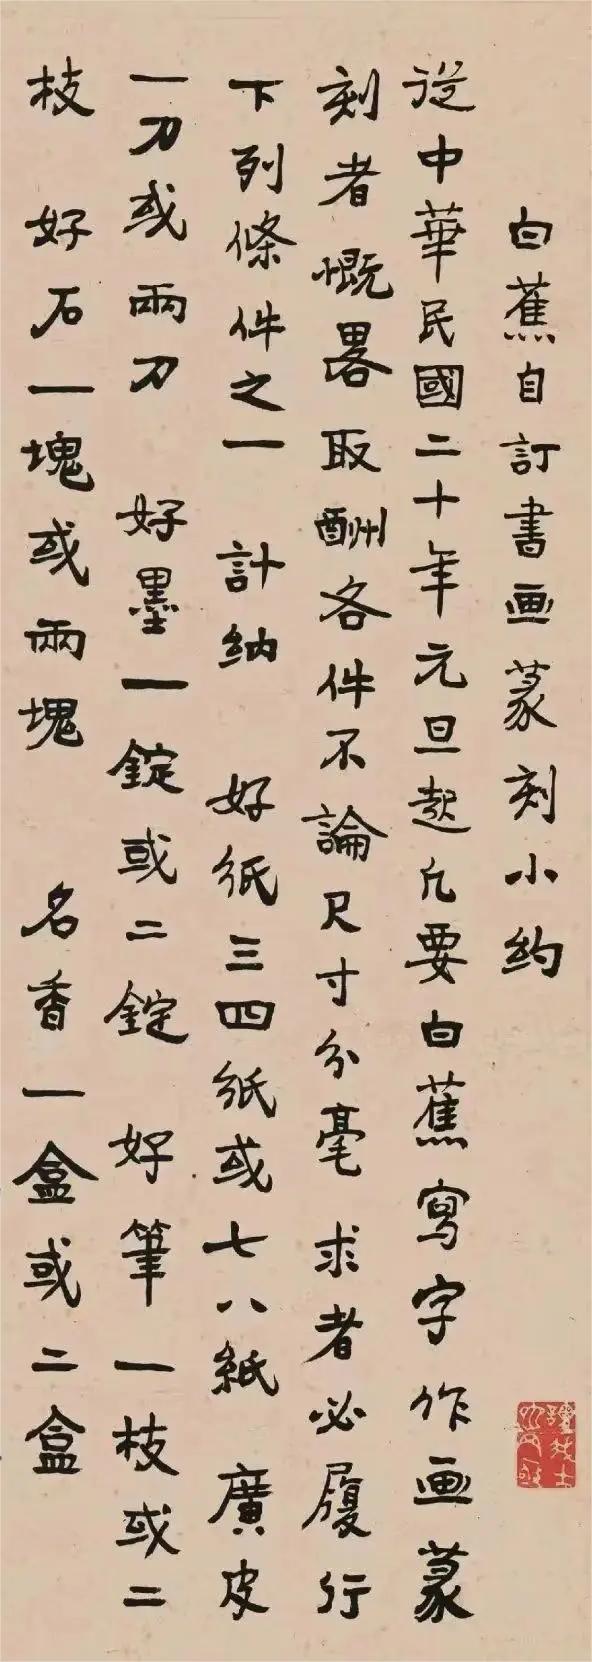 白蕉自訂書画篆刻小約
從中華民國二十年元旦起凡要白蕉寫字作画篆
刻者慨畧取酬各件不論尺寸分毫求者必履行
下列條件之一 計納 好紙三四紙或七八紙 廣皮
一刀或兩刀 好墨一錠或二錠 好筆一枝或二
枝 好石一塊或兩塊 名香一盒或二盒